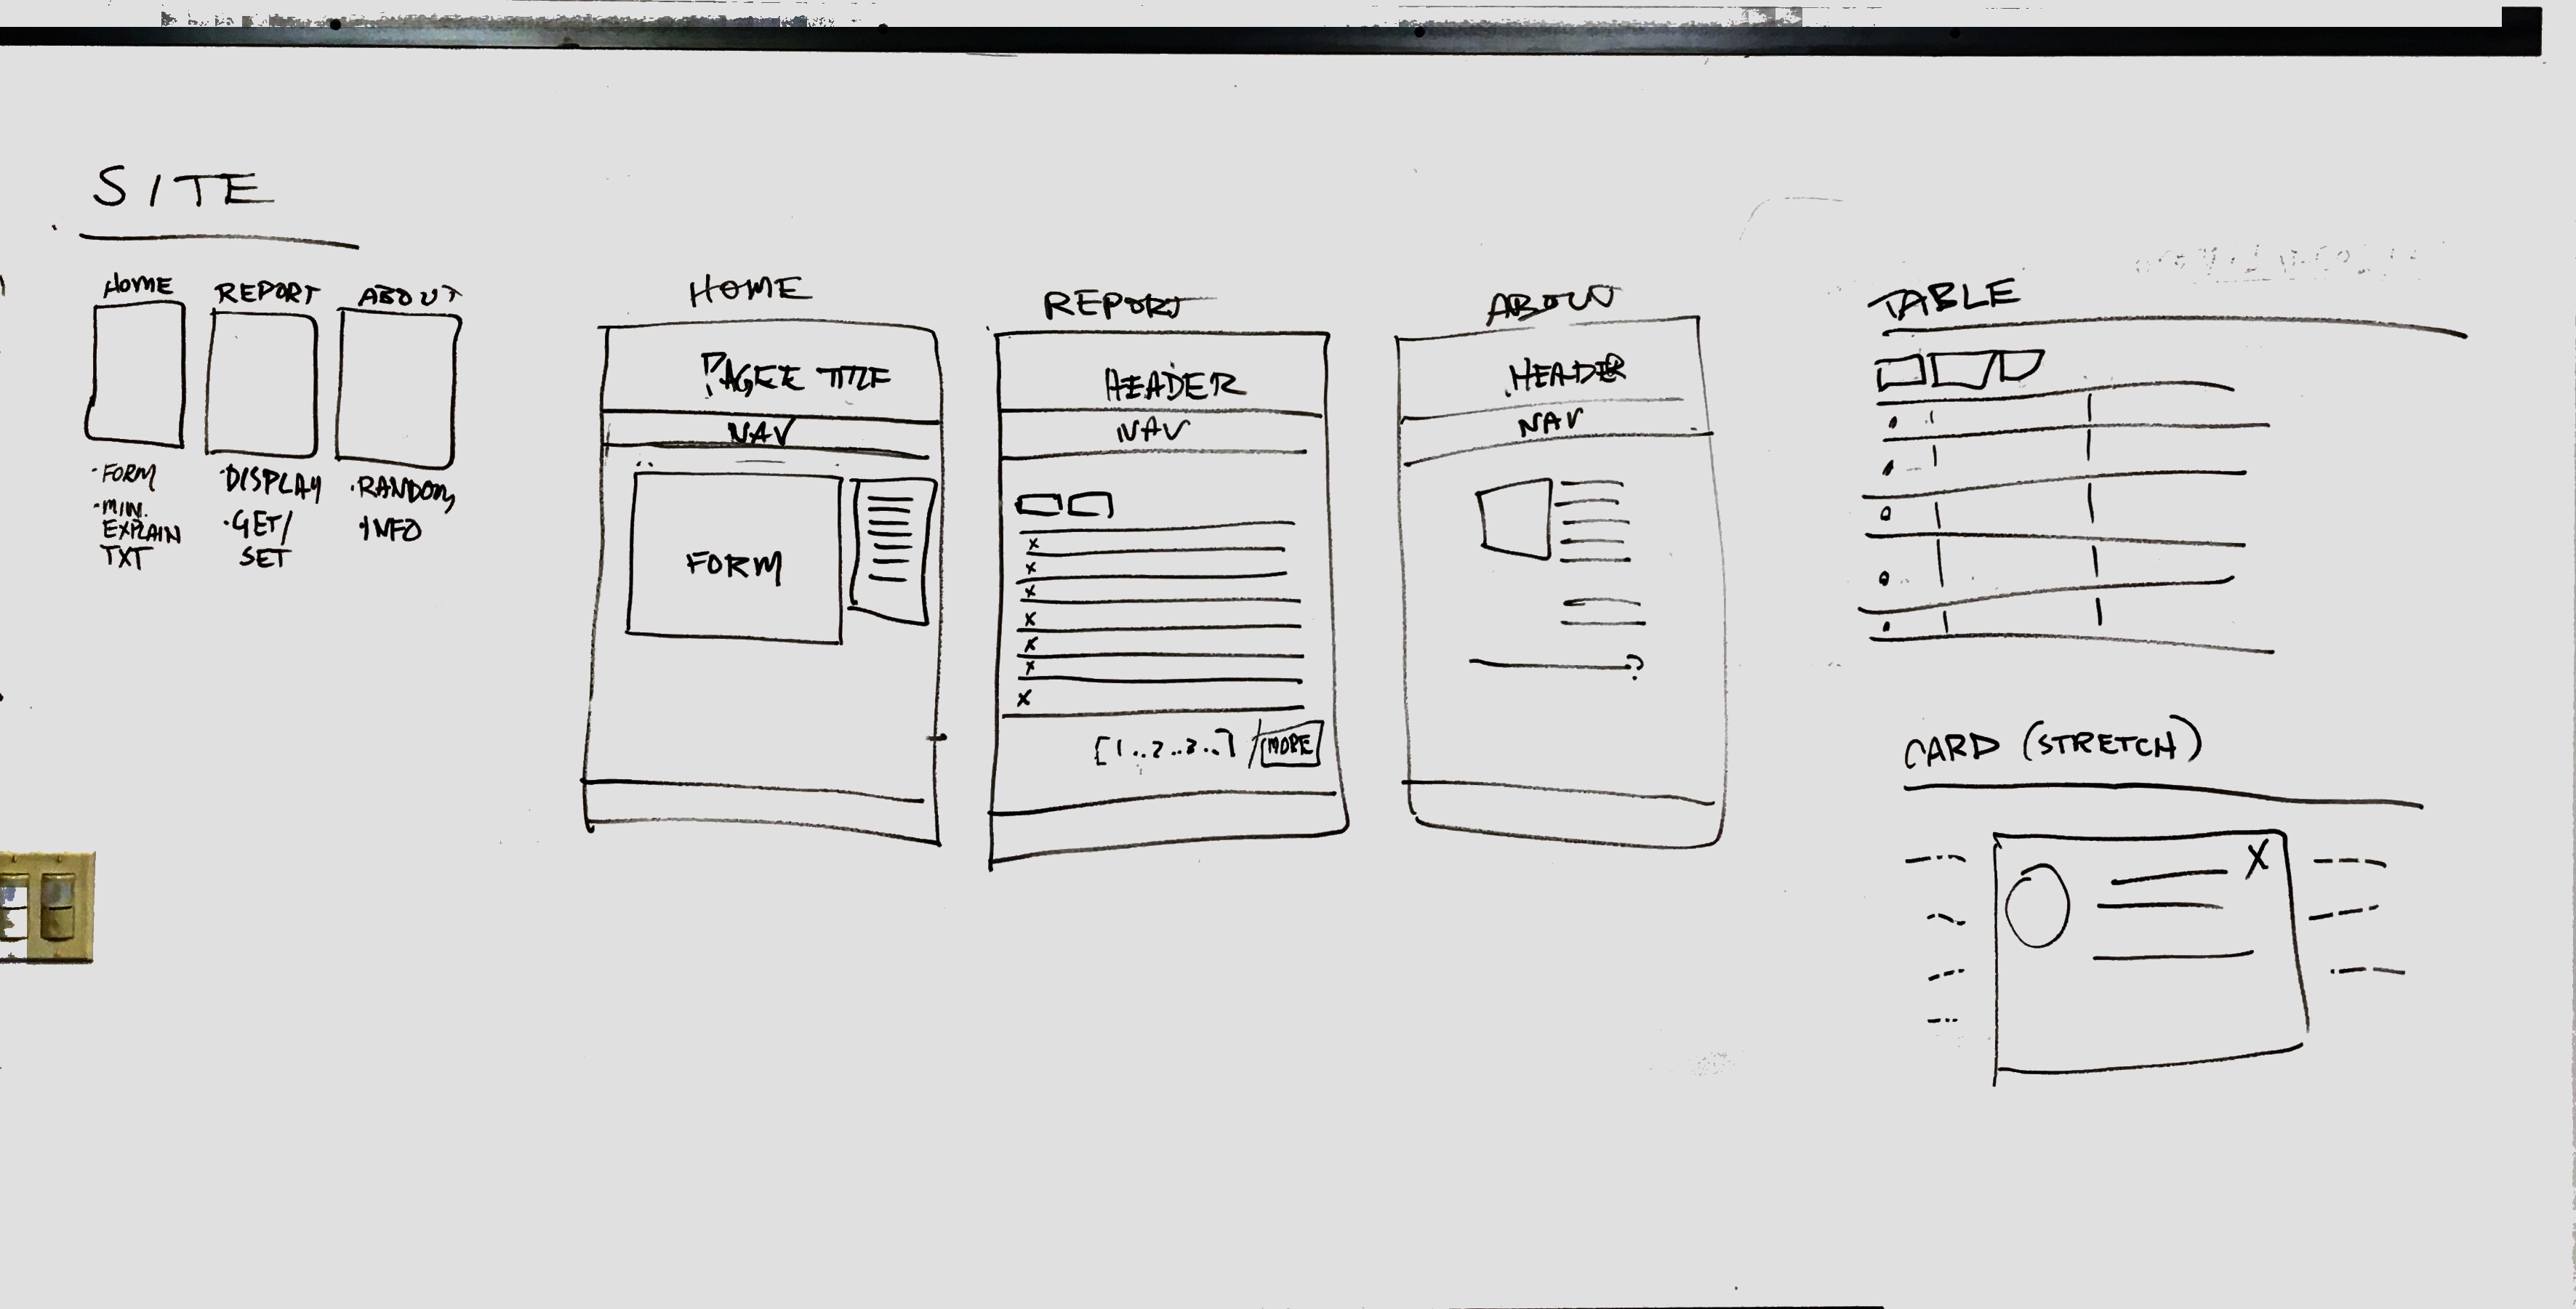 SITE
HOME
REPORT
ABOUT
· FORM
· MIN.
EXPLAIN
TXT
· DISPLAY
· GET/
SET
· RANDOM
· INFO
HOME
PAGEE TITLE
NAV
FORM
REPORT
HEADER
NAV
x
x
x
x
x
x
x
[1..2..3..] / MORE
ABOUT
HEADER
NAV
?
TABLE
CARD (STRETCH)
X